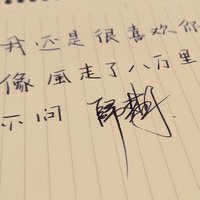 我还是很喜欢你
像風走了八万里
不问 归期